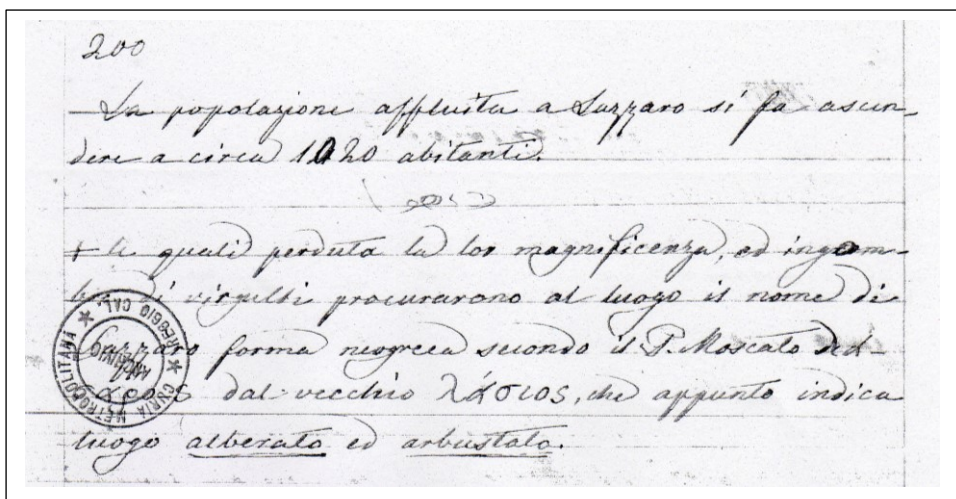 200
La popolazione affluita a Lazzaro si fa ascen-
dere a circa 1020 abitanti.
+ le quali perduta la lor magnificenza, ad ingom-
di virgulti procurarono al luogo il nome di
Lazzaro forma neogreca secondo il P. Moscato
dal vecchio λάσιος, che appunto indica
luogo alberato ed arbustato.
CURIA METROPOLITANA * REGGIO CAL. *
ARCHIVIO